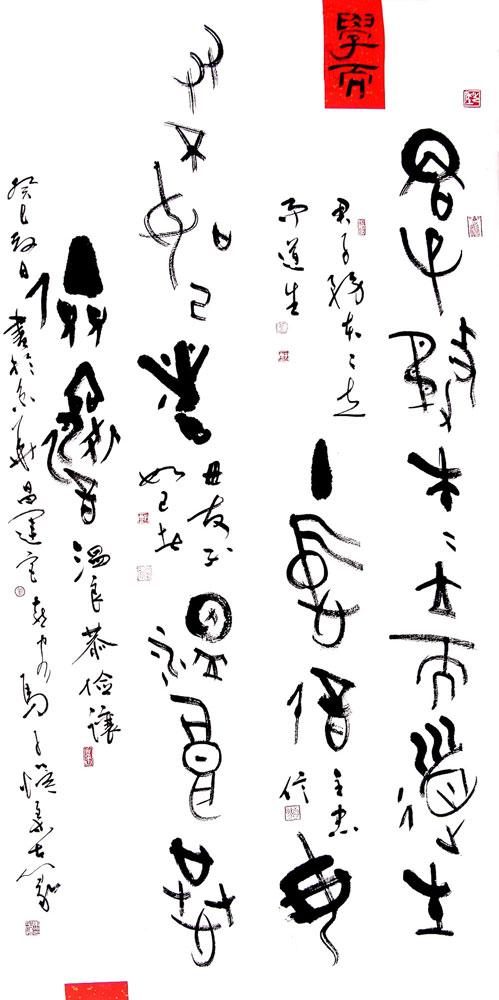 學而
君子務本〻立而道生
君子務本〻立
而道生
主忠信
主忠
信
毋
友不如己者
毋友不
如己者
溫良恭
儉讓
溫良恭儉讓
癸巳
書於
昌運宮
馬子愷
古篆